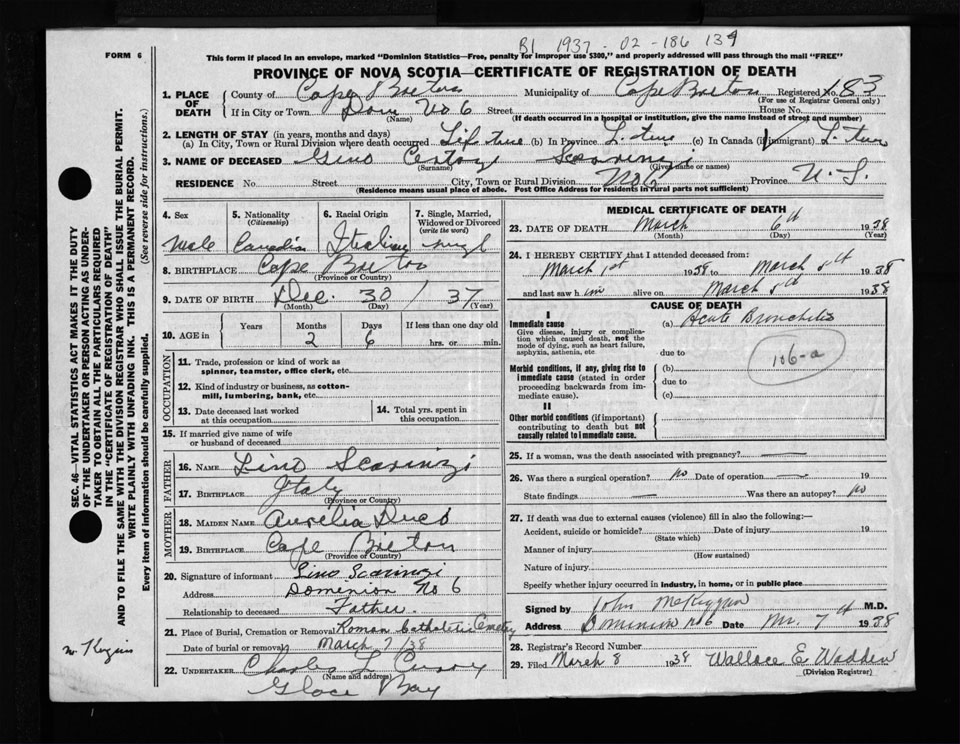 B1 1937 - 02 - 186 134
FORM 6
This form if placed in an envelope, marked "Dominion Statistics—Free, penalty for improper use $300," and properly addressed will pass through the mail "FREE"
PROVINCE OF NOVA SCOTIA—CERTIFICATE OF REGISTRATION OF DEATH
1. PLACE OF DEATH County of Cape Breton Municipality of Cape Breton Registered No. 183
(For use of Registrar General only)
If in City or Town Dom No 6 Street House No.
(Name) (If death occurred in a hospital or institution, give the name instead of street and number)
2. LENGTH OF STAY (in years, months and days)
(a) In City, Town or Rural Division where death occurred Life time (b) In Province L. time (c) In Canada (if immigrant) L. time
3. NAME OF DECEASED Gino Scarinzi
(Surname) (Given name or names)
RESIDENCE No. Street City, Town or Rural Division No 6 Province N. S.
(Residence means usual place of abode. Post Office Address for residents in rural parts not sufficient)
4. Sex 5. Nationality (Citizenship) 6. Racial Origin 7. Single, Married, Widowed or Divorced (write the word)
Male Canadian Italian single
8. BIRTHPLACE Cape Breton
(Province or Country)
9. DATE OF BIRTH Dec. 30 / 37
(Month) (Day) (Year)
10. AGE in Years Months Days If less than one day old
2 6 hrs. or min.
OCCUPATION
11. Trade, profession or kind of work as spinner, teamster, office clerk, etc.
12. Kind of industry or business, as cotton-mill, lumbering, bank, etc.
13. Date deceased last worked at this occupation
14. Total yrs. spent in this occupation
15. If married give name of wife or husband of deceased
FATHER
16. NAME Lino Scarinzi
17. BIRTHPLACE Italy
(Province or Country)
MOTHER
18. MAIDEN NAME Aurelia
19. BIRTHPLACE Cape Breton
(Province or Country)
20. Signature of informant Lino Scarinzi
Address Dominion No 6
Relationship to deceased Father.
21. Place of Burial, Cremation or Removal Roman Catholic Cemetery
Date of burial or removal March 7/38
22. UNDERTAKER Charles L Curry
(Name and address)
Glace Bay
MEDICAL CERTIFICATE OF DEATH
23. DATE OF DEATH March 6th 1938
(Month) (Day) (Year)
24. I HEREBY CERTIFY that I attended deceased from:
March 1st 1938 to March 5th 1938
and last saw him alive on March 5th 1938
CAUSE OF DEATH
I
Immediate cause (a) Acute Bronchitis
Give disease, injury or complication which caused death, not the mode of dying, such as heart failure, asphyxia, asthenia, etc.
due to
106-a
Morbid conditions, if any, giving rise to immediate cause (stated in order proceeding backwards from immediate cause).
(b)
due to
(c)
II
Other morbid conditions (if important) contributing to death but not causally related to immediate cause.
25. If a woman, was the death associated with pregnancy? —
26. Was there a surgical operation? No Date of operation — 19
State findings — Was there an autopsy? No
27. If death was due to external causes (violence) fill in also the following:—
Accident, suicide or homicide? Date of injury 19
(State which)
Manner of injury
(How sustained)
Nature of injury
Specify whether injury occurred in industry, in home, or in public place
Signed by John McKiggan M.D.
Address Dominion No 6 Date Mr. 7th 1938
28. Registrar's Record Number
29. Filed March 8 1938 Wallace E Wadden
(Division Registrar)
SEC. 46—VITAL STATISTICS ACT MAKES IT THE DUTY
OF THE UNDERTAKER OR PERSON ACTING AS UNDER-
TAKER TO OBTAIN ALL THE PARTICULARS REQUIRED
IN THE "CERTIFICATE OF REGISTRATION OF DEATH"
AND TO FILE THE SAME WITH THE DIVISION REGISTRAR WHO SHALL ISSUE THE BURIAL PERMIT.
WRITE PLAINLY WITH UNFADING INK. THIS IS A PERMANENT RECORD.
Every item of information should be carefully supplied. (See reverse side for instructions.)